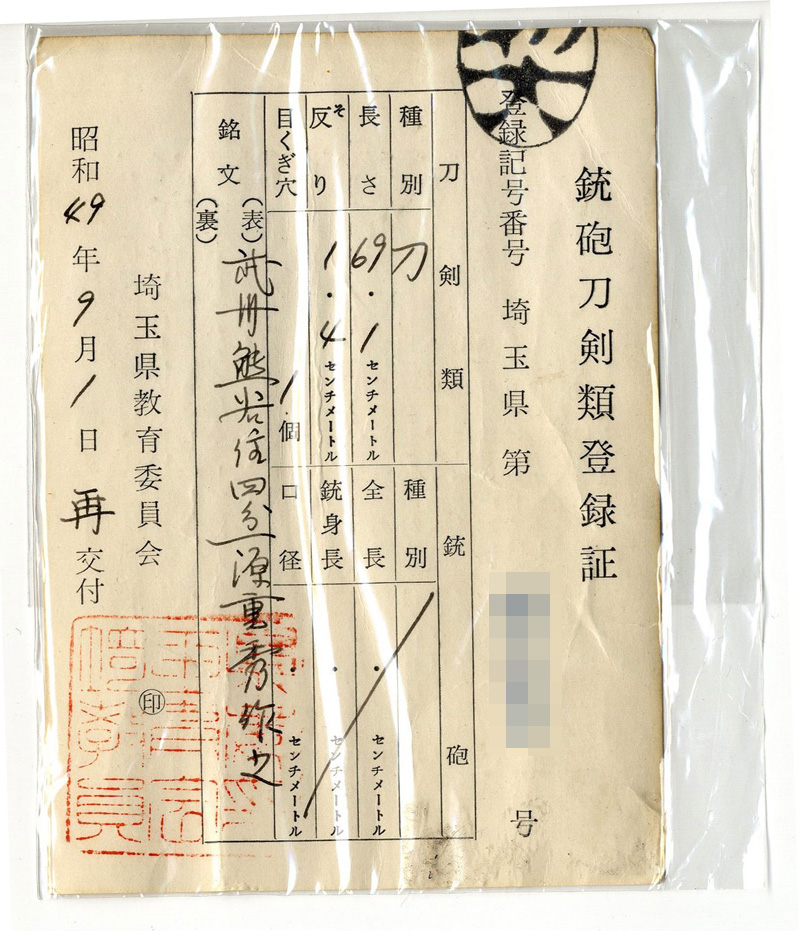 銃砲刀剣類登録証
登録記号番号 埼玉県 第 号
刀剣類
種別 刀
長さ 69.1センチメートル
そ
反り 1.4センチメートル
目くぎ穴 1個
銃砲
種別
全長 ・ センチメートル
銃身長 ・ センチメートル
口径 ・ センチメートル
銘文 (表) 武州熊谷住四分一源重秀作之
(裏)
埼玉県教育委員会 ㊞
昭和49年9月1日 再交付